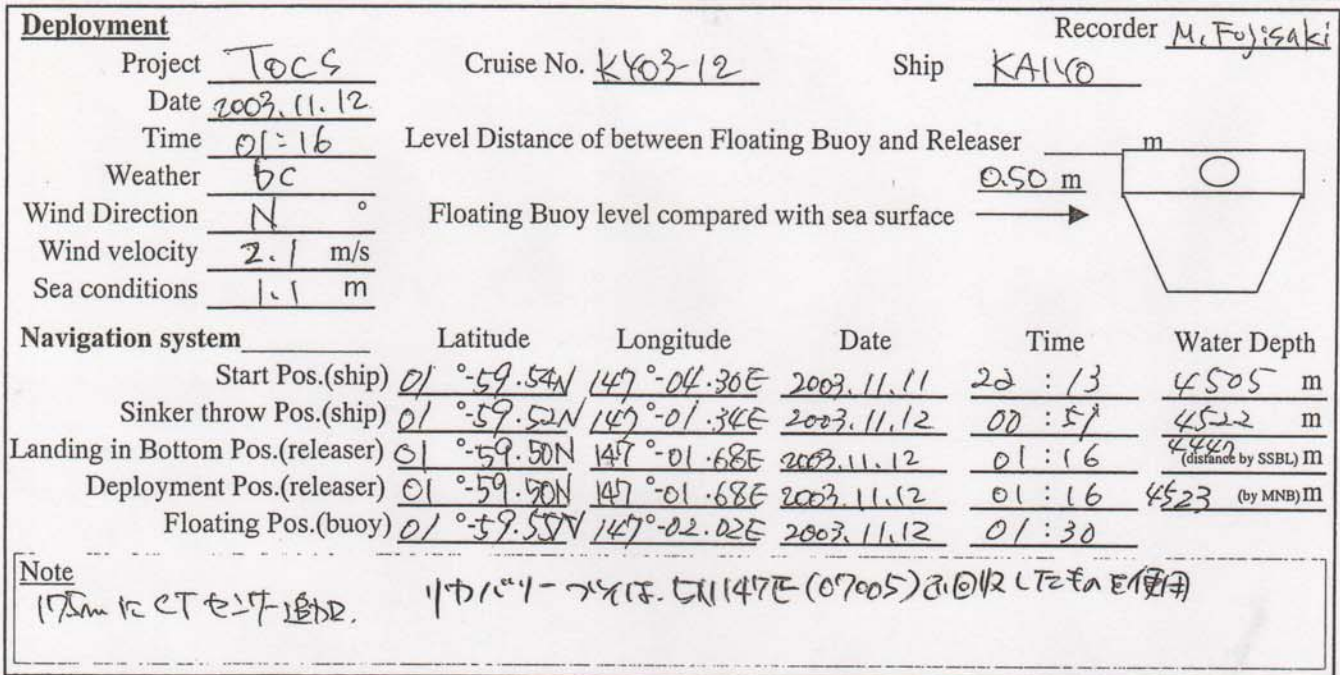 Deployment Recorder M. Fujisaki
Project TOCS Cruise No. KY03-12 Ship KAIYO
Date 2003.11.12
Time 01:16 Level Distance of between Floating Buoy and Releaser m
Weather bc 0.50 m
Wind Direction N ° Floating Buoy level compared with sea surface
Wind velocity 2.1 m/s
Sea conditions 1.1 m
Navigation system Latitude Longitude Date Time Water Depth
Start Pos.(ship) 01 °-59.54N 147°-04.30E 2003.11.11 22 : 13 4505 m
Sinker throw Pos.(ship) 01 °-59.52N 147°-01.34E 2003.11.12 00 : 51 4522 m
Landing in Bottom Pos.(releaser) 01 °-59.50N 147°-01.68E 2003.11.12 01 : 16 (distance by SSBL) m
Deployment Pos.(releaser) 01 °-59.50N 147°-01.68E 2003.11.12 01 : 16 4523 (by MNB) m
Floating Pos.(buoy) 01 °-59.55N 147°-02.02E 2003.11.12 01 : 30
Note
175m に CT センサー追加. リカバリーブイは. 5N147E (07005) で回収したものを使用